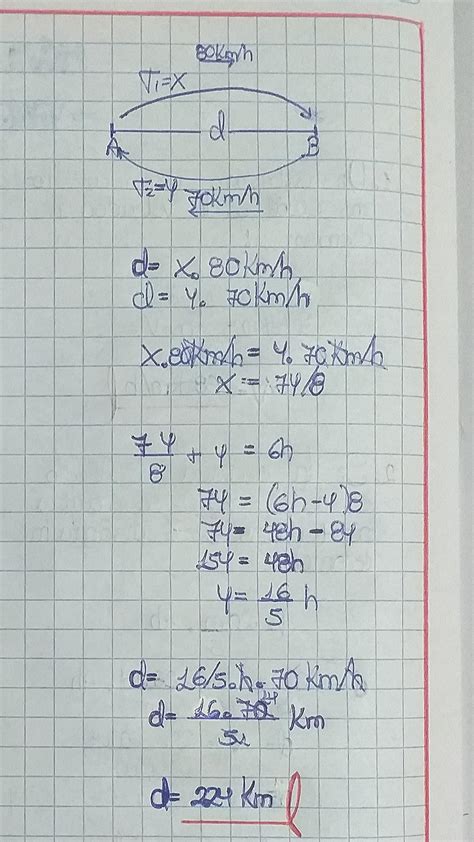 80Km/h
T₁=X
A d B
T₂=Y 70Km/h
d= X. 80Km/h
d= Y. 70Km/h
X.80Km/h = Y. 70Km/h
X = 7Y/8
7Y/8 + Y = 6h
7Y = (6h-Y)8
7Y= 48h - 8Y
15Y = 48h
Y= 16/5 h
d= 16/5.h. 70 Km/h
d= 16.70 14/5 1 Km
d= 224 Km